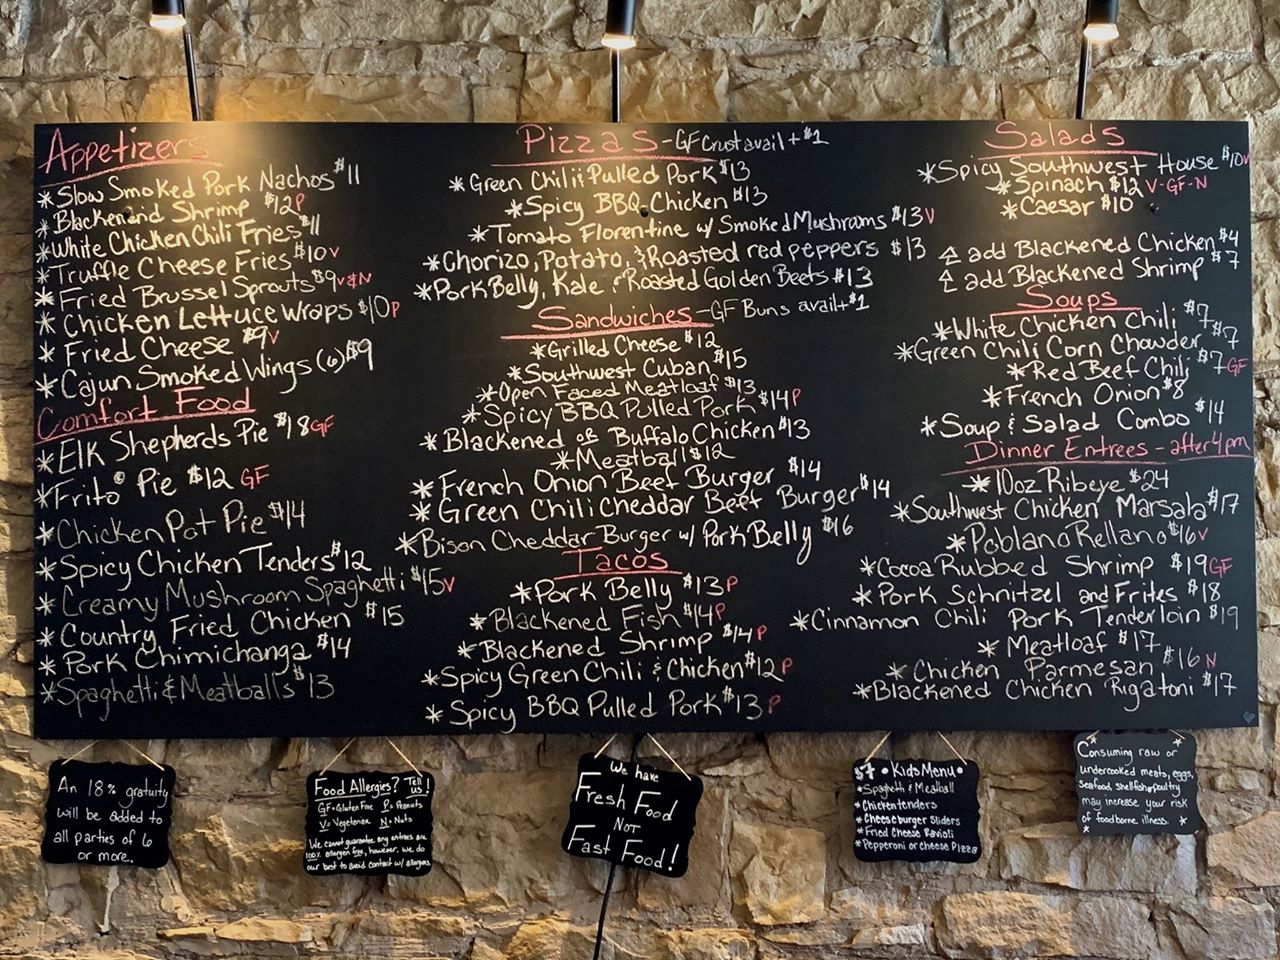 Appetizers
*Slow Smoked Pork Nachos $11
*Blackenand Shrimp $12 P
*White Chicken Chili Fries $11
*Truffle Cheese Fries $10 V
*Fried Brussel Sprouts $9 V&N
*Chicken Lettuce Wraps $10 P
*Fried Cheese $9 V
*Cajun Smoked Wings (6) $9
Comfort Food
*Elk Shepherds Pie $18 GF
*Frito® Pie $12 GF
*Chicken Pot Pie $14
*Spicy Chicken Tenders $12
*Creamy Mushroom Spaghetti $15 V
*Country Fried Chicken $15
*Pork Chimichanga $14
*Spaghetti & Meatballs $13
Pizzas - GF Crust avail + $1
*Green Chili & Pulled Pork $13
*Spicy BBQ Chicken $13
*Tomato Florentine w/ Smoked Mushrams $13 V
*Chorizo, Potato, & Roasted red peppers $13
*Pork Belly, Kale & Roasted Golden Beets $13
Sandwiches - GF Buns avail + $1
*Grilled Cheese $12
*Southwest Cuban $15
*Open Faced Meatloaf $13
*Spicy BBQ Pulled Pork $14 P
*Blackened or Buffalo Chicken $13
*Meatball $12
*French Onion Beef Burger $14
*Green Chili Cheddar Beef Burger $14
*Bison Cheddar Burger w/ Pork Belly $16
Tacos
*Pork Belly $13 P
*Blackened Fish $14 P
*Blackened Shrimp $14 P
*Spicy Green Chili & Chicken $12 P
*Spicy BBQ Pulled Pork $13 P
Salads
*Spicy Southwest House $10 V
*Spinach $12 V-GF-N
*Caesar $10
add Blackened Chicken $4
add Blackened Shrimp $7
Soups
*White Chicken Chili $7
*Green Chili Corn Chowder $7
*Red Beef Chili $7 GF
*French Onion $8
*Soup & Salad Combo $14
Dinner Entrees - after 4pm
*10oz Ribeye $24
*Southwest Chicken Marsala $17
*Poblano Rellano $16 V
*Cocoa Rubbed Shrimp $19 GF
*Pork Schnitzel and Frites $18
*Cinnamon Chili Pork Tenderloin $19
*Meatloaf $17
*Chicken Parmesan $16 N
*Blackened Chicken Rigatoni $17
An 18% gratuity
will be added to
all parties of 6
or more.
Food Allergies? Tell us!
GF=Gluten Free P=Peanuts
V=Vegetarian N=Nuts
We cannot guarantee any entrees are
100% allergen free, however, we do
our best to avoid contact w/ allergens
We have
Fresh Food
NOT
Fast Food!
$7 • Kids Menu •
*Spaghetti & Meatball
*Chicken tenders
*Cheeseburger Sliders
*Fried Cheese Ravioli
*Pepperoni or Cheese Pizza
Consuming raw or
undercooked meats, eggs,
seafood, shellfish or poultry
may increase your risk
of foodborne illness.